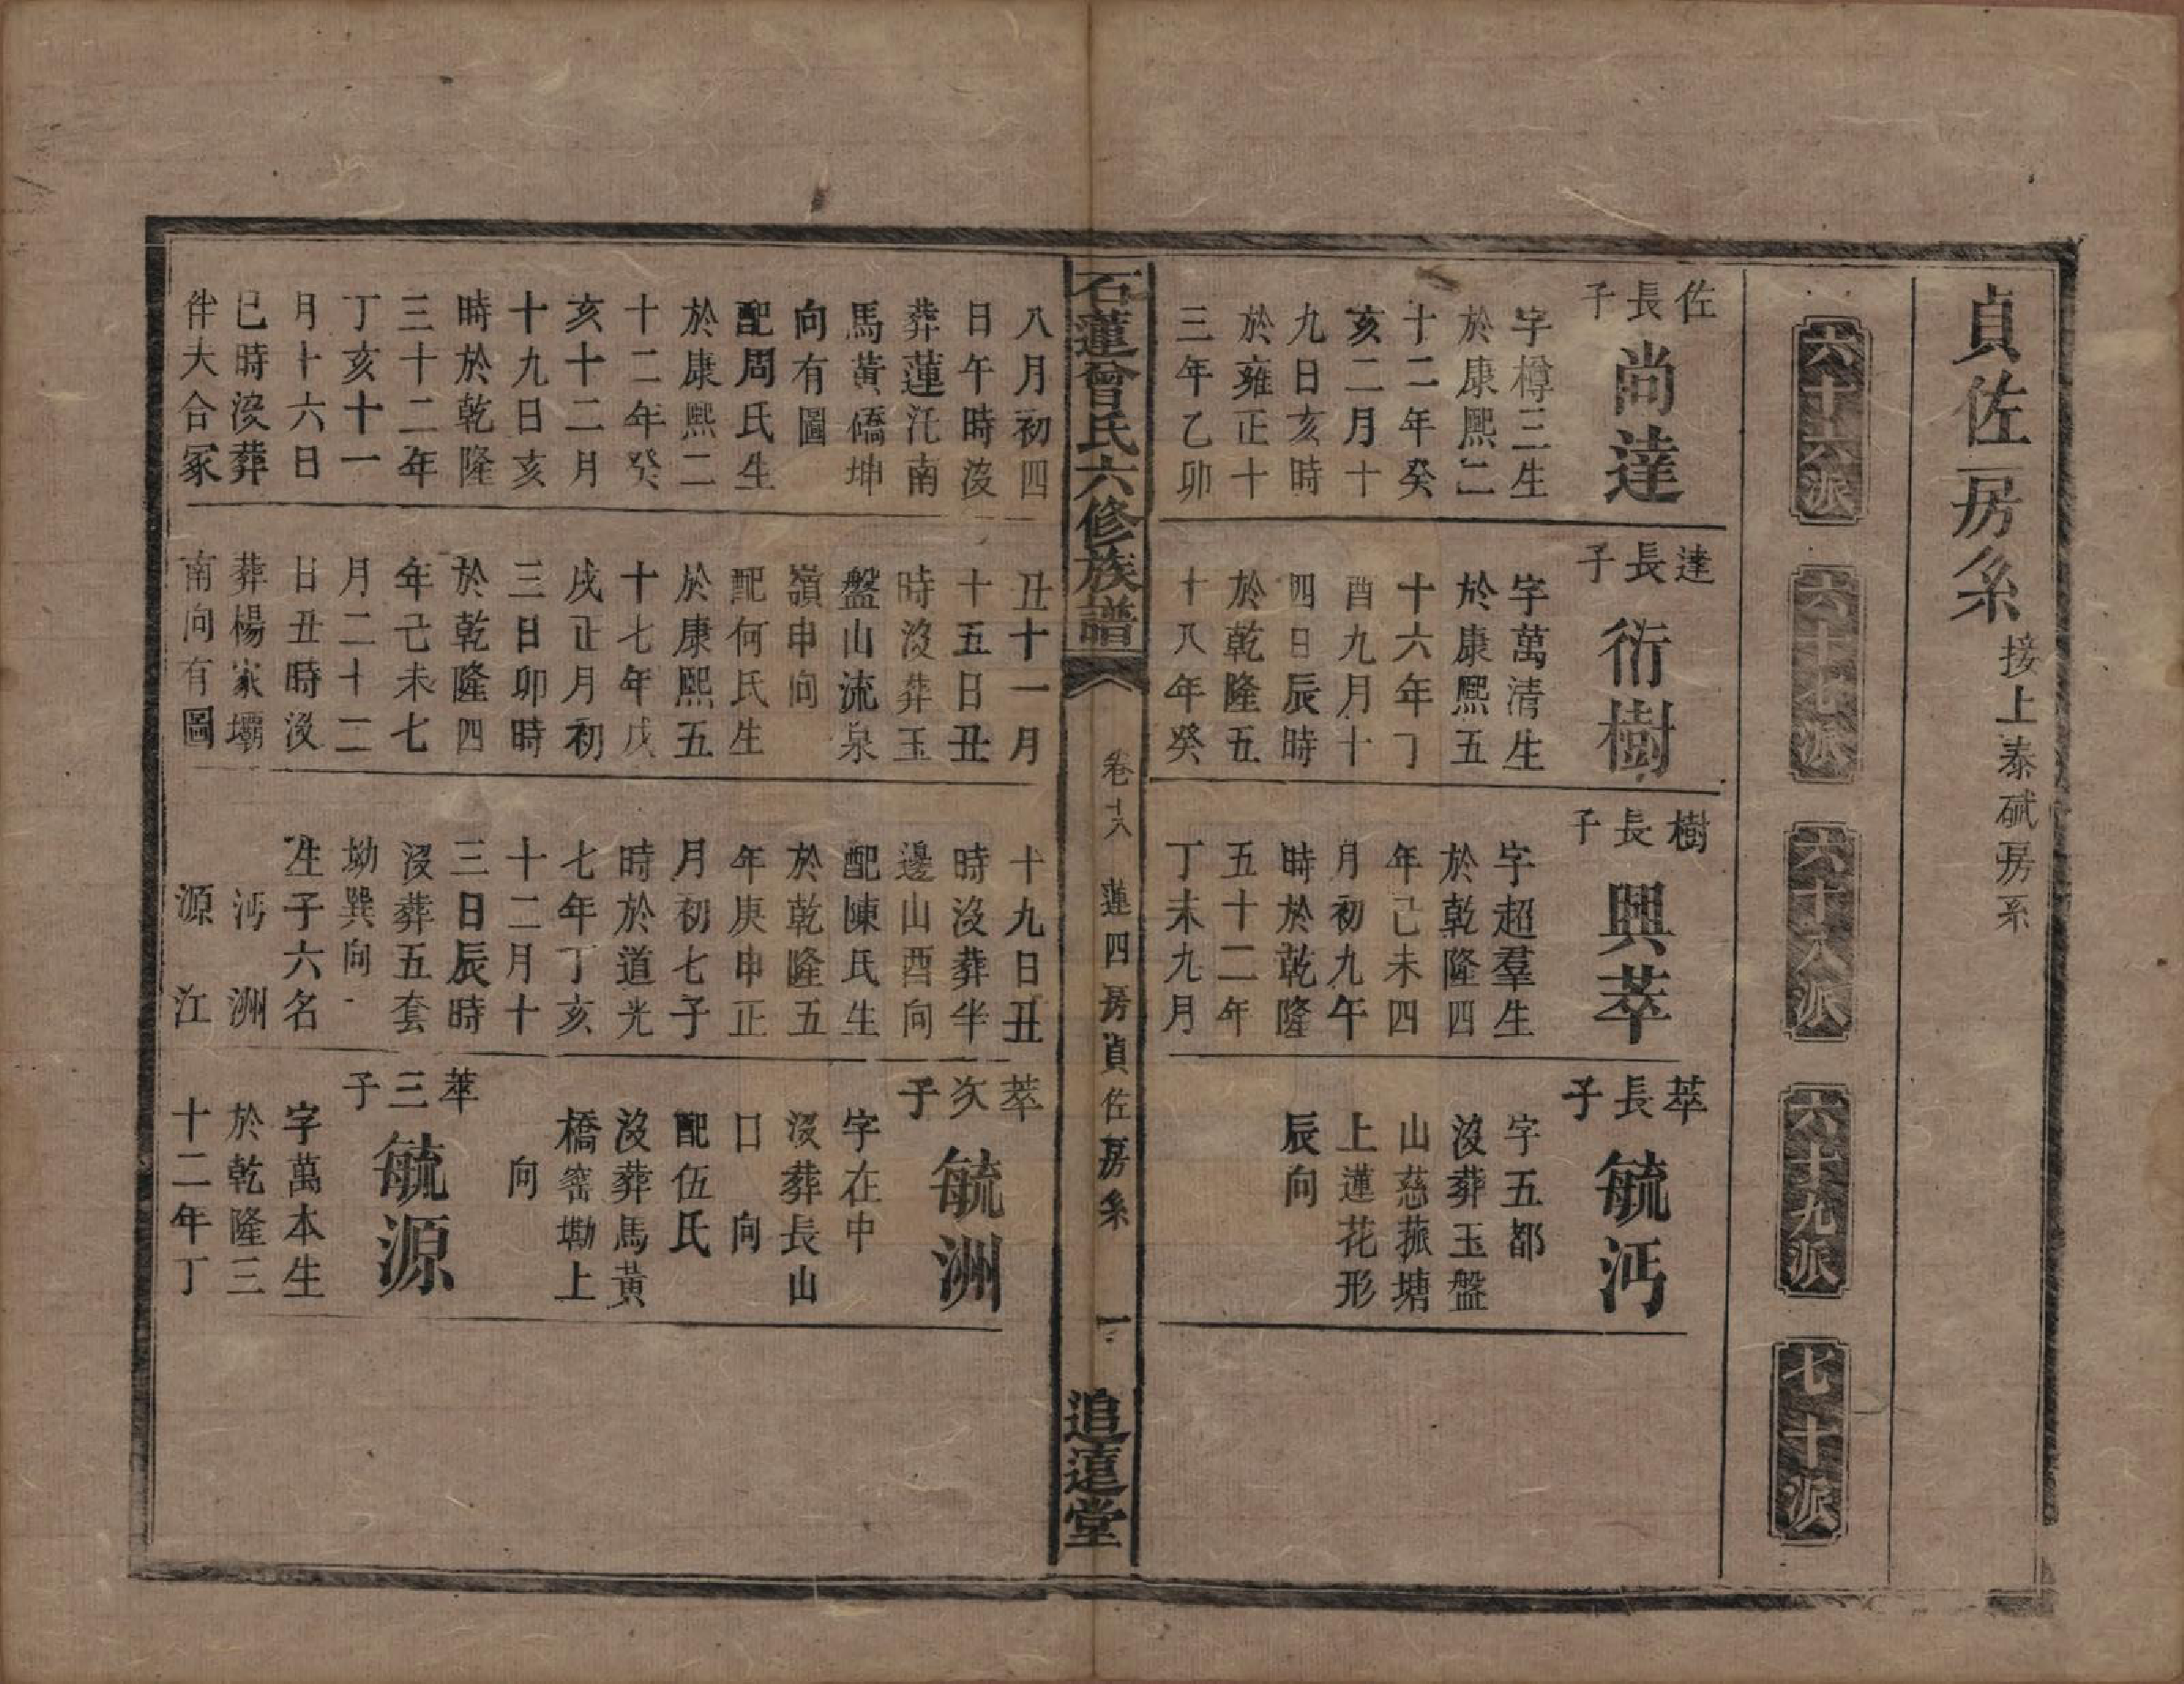 貞佐房系 接上泰碔房系
六十六派
六十七派
六十八派
六十九派
七十派
佐長子
尚達
字樽三生
於康熙二
十二年癸
亥二月十
九日亥時
於雍正十
三年乙卯
達長子
衍樹
字萬清生
於康熙五
十六年丁
酉九月十
四日辰時
於乾隆五
十八年癸
樹長子
興萃
字超羣生
於乾隆四
年己未四
月初九午
時於乾隆
五十二年
丁未九月
萃長子
毓沔
字五都
沒葬玉盤
山慈菰塘
上蓮花形
辰向
石蓮曾氏六修族譜
卷十八 蓮四房貞佐房系
一
追遠堂
八月初四
日午時沒
葬蓮汑南
馬黃僑坤
向有圖
配周氏生
於康熙二
十二年癸
亥十二月
十九日亥
時於乾隆
三十二年
丁亥十一
月十六日
巳時沒葬
件大合冢
丑十一月
十五日丑
時沒葬玉
盤山流泉
嶺申向
配何氏生
於康熙五
十七年戊
戌正月初
三日卯時
於乾隆四
年己未七
月二十二
日丑時沒
葬楊家壩
南向有圖
十九日丑
時沒葬半
邊山酉向
配陳氏生
於乾隆五
年庚申正
月初七子
時於道光
七年丁亥
十二月十
三日辰時
沒葬五套
坳巽向
生子六名
沔 洲
源 江
萃次子
毓洲
字在中
沒葬長山
口 向
配伍氏
沒葬馬黃
橋窰塝上
向
萃三子
毓源
字萬本生
於乾隆三
十二年丁